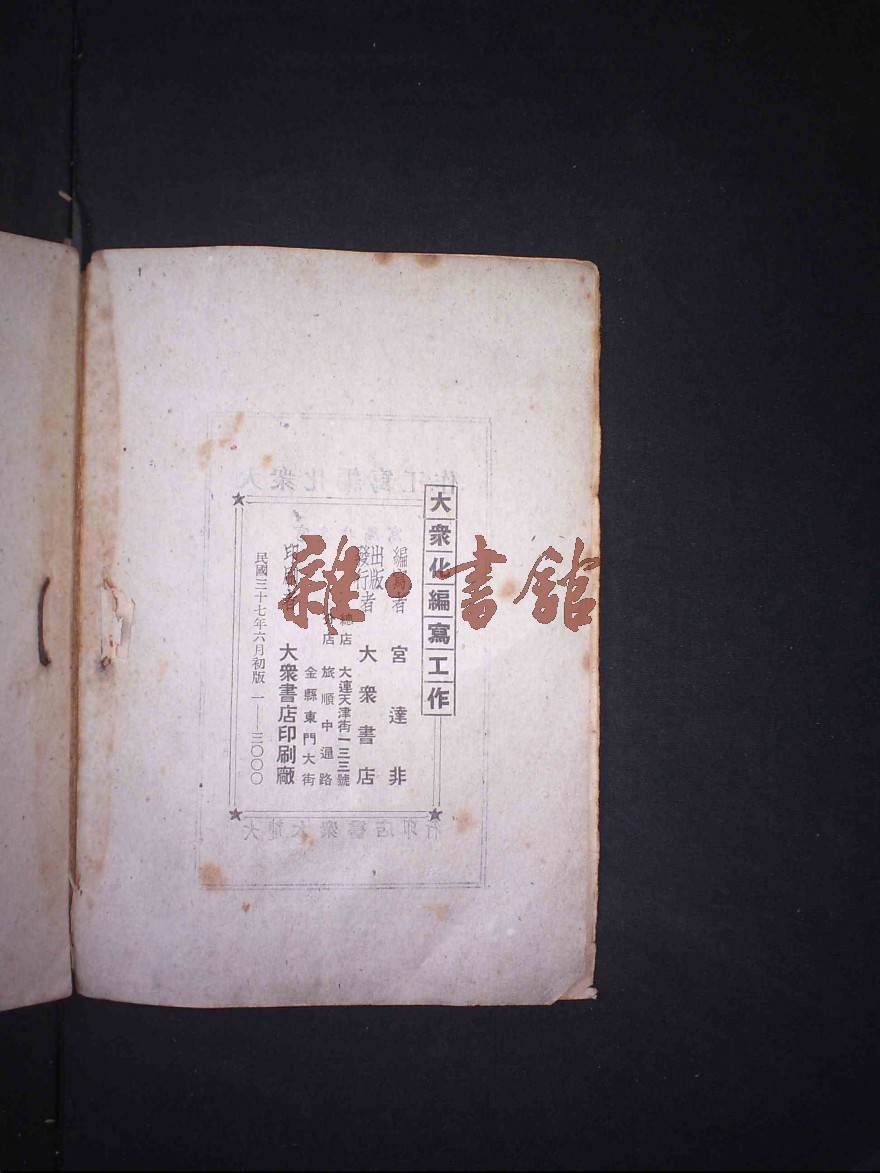 大衆化編寫工作
編寫者 宮達非
出版
發行者 大衆書店
總店 大連天津街一三三號
分店 旅順中通路
金縣東門大街
印刷者 大衆書店印刷廠
民國三十七年六月初版 一——三〇〇〇
雜·書館
大衆化編寫工作
大連大衆書店印行